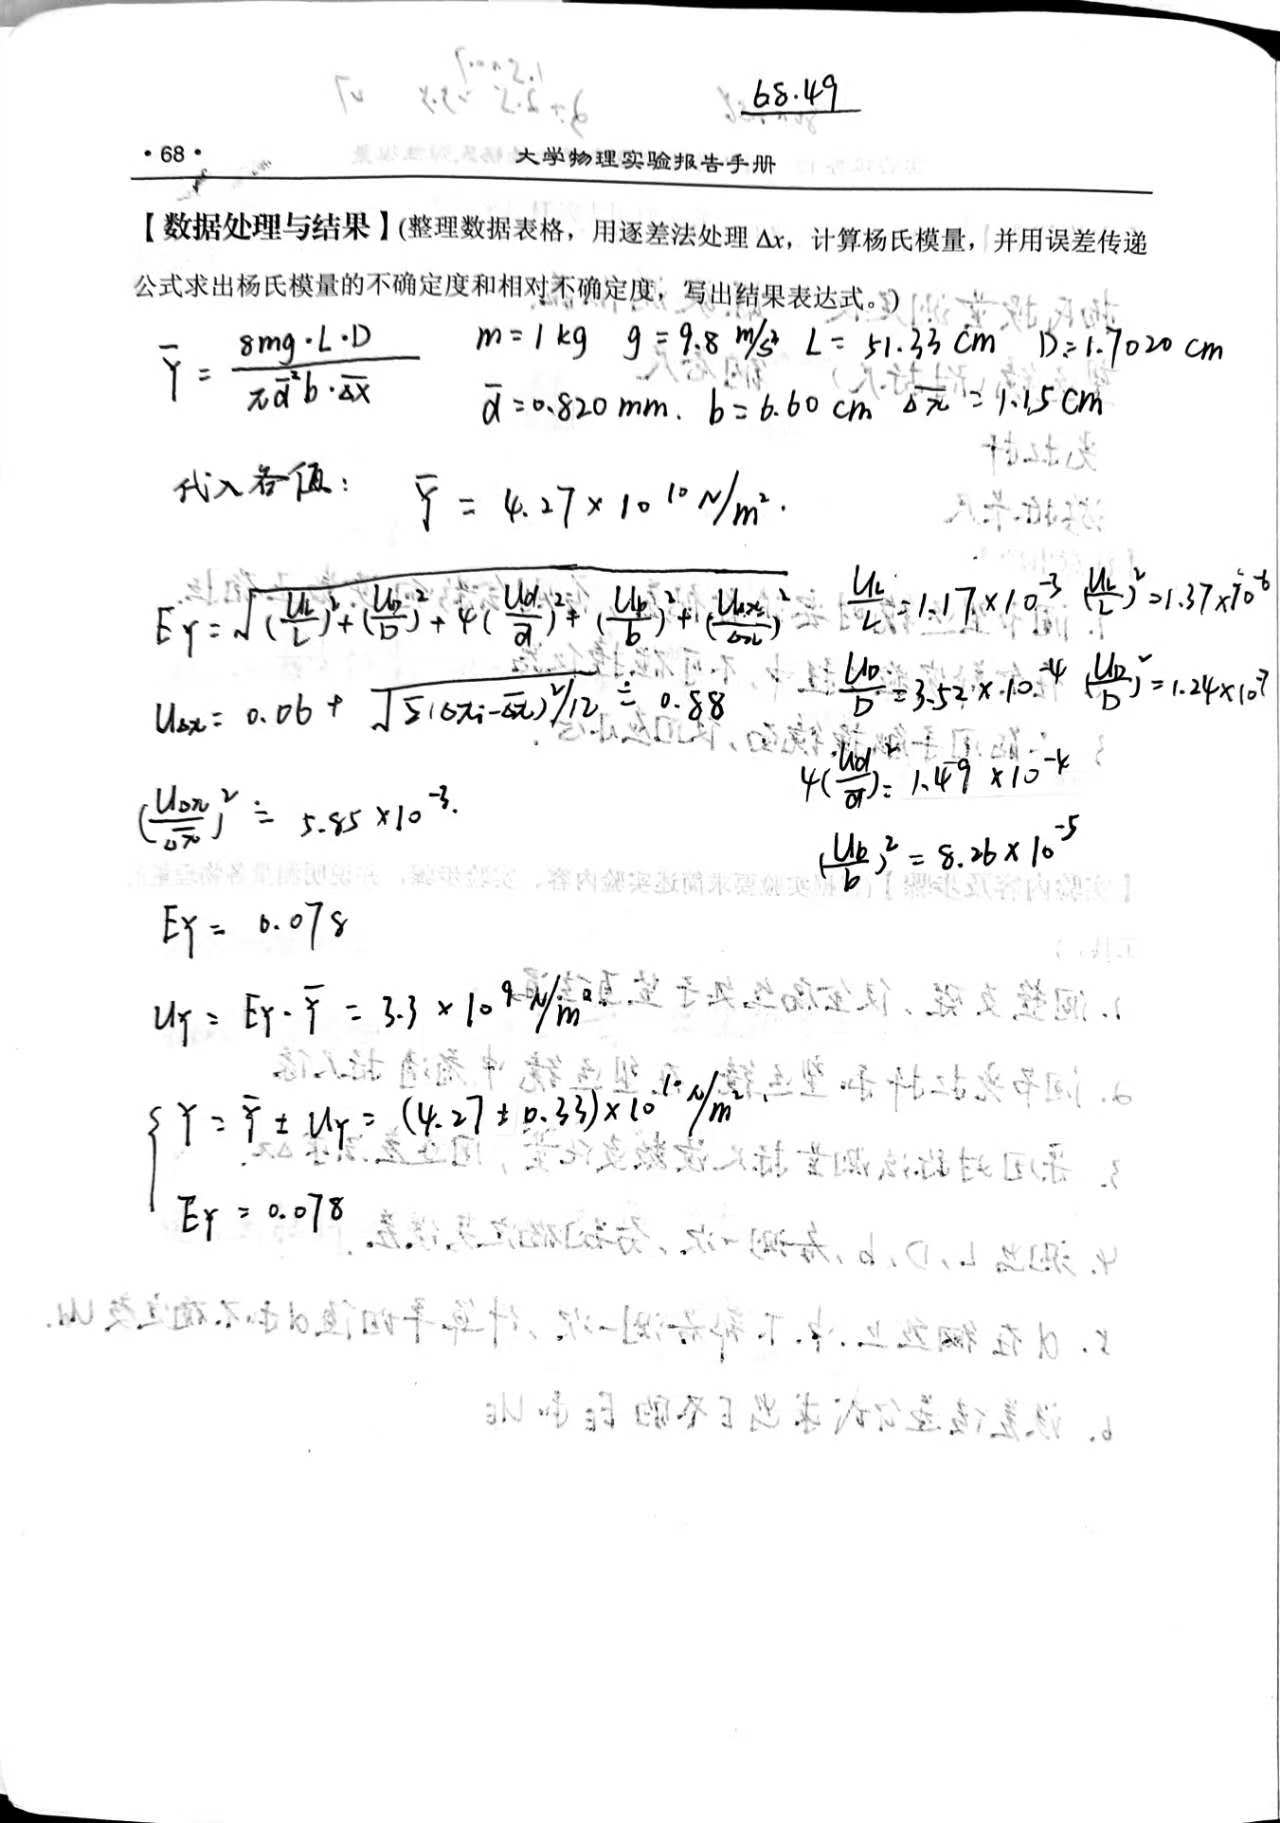 68.49
·68· 大学物理实验报告手册
【数据处理与结果】(整理数据表格，用逐差法处理 Δx，计算杨氏模量，并用误差传递
公式求出杨氏模量的不确定度和相对不确定度，写出结果表达式。)
Ȳ = 8mg·L·D / πd̄²b·Δx̄ m=1kg g=9.8 m/s² L= 51.33 cm D=1.7020 cm
d̄=0.820mm. b=6.60 cm Δx̄=1.15cm
代入各值: Ȳ = 4.27×10¹⁰ N/m².
E_Y=√((U_L/L)²+(U_D/D)²+4(U_d/d̄)²+(U_b/b)²+(U_Δx/Δx̄)²) U_L/L=1.17×10⁻³ (U_L/L)²=1.37×10⁻⁶
U_Δx= 0.06+√(Σ(Δxi-Δx̄)²/12) ≐ 0.88 U_D/D=3.52×10⁻⁴ (U_D/D)²=1.24×10⁻⁷
4(U_d/d̄)²=1.49×10⁻⁴
(U_Δx/Δx̄)² ≐ 5.85×10⁻³.
(U_b/b)²=8.26×10⁻⁵
E_Y= 0.078
U_Y= E_Y·Ȳ = 3.3×10⁹N/m².
{ Y=Ȳ±U_Y= (4.27±0.33)×10¹⁰N/m²
E_Y=0.078